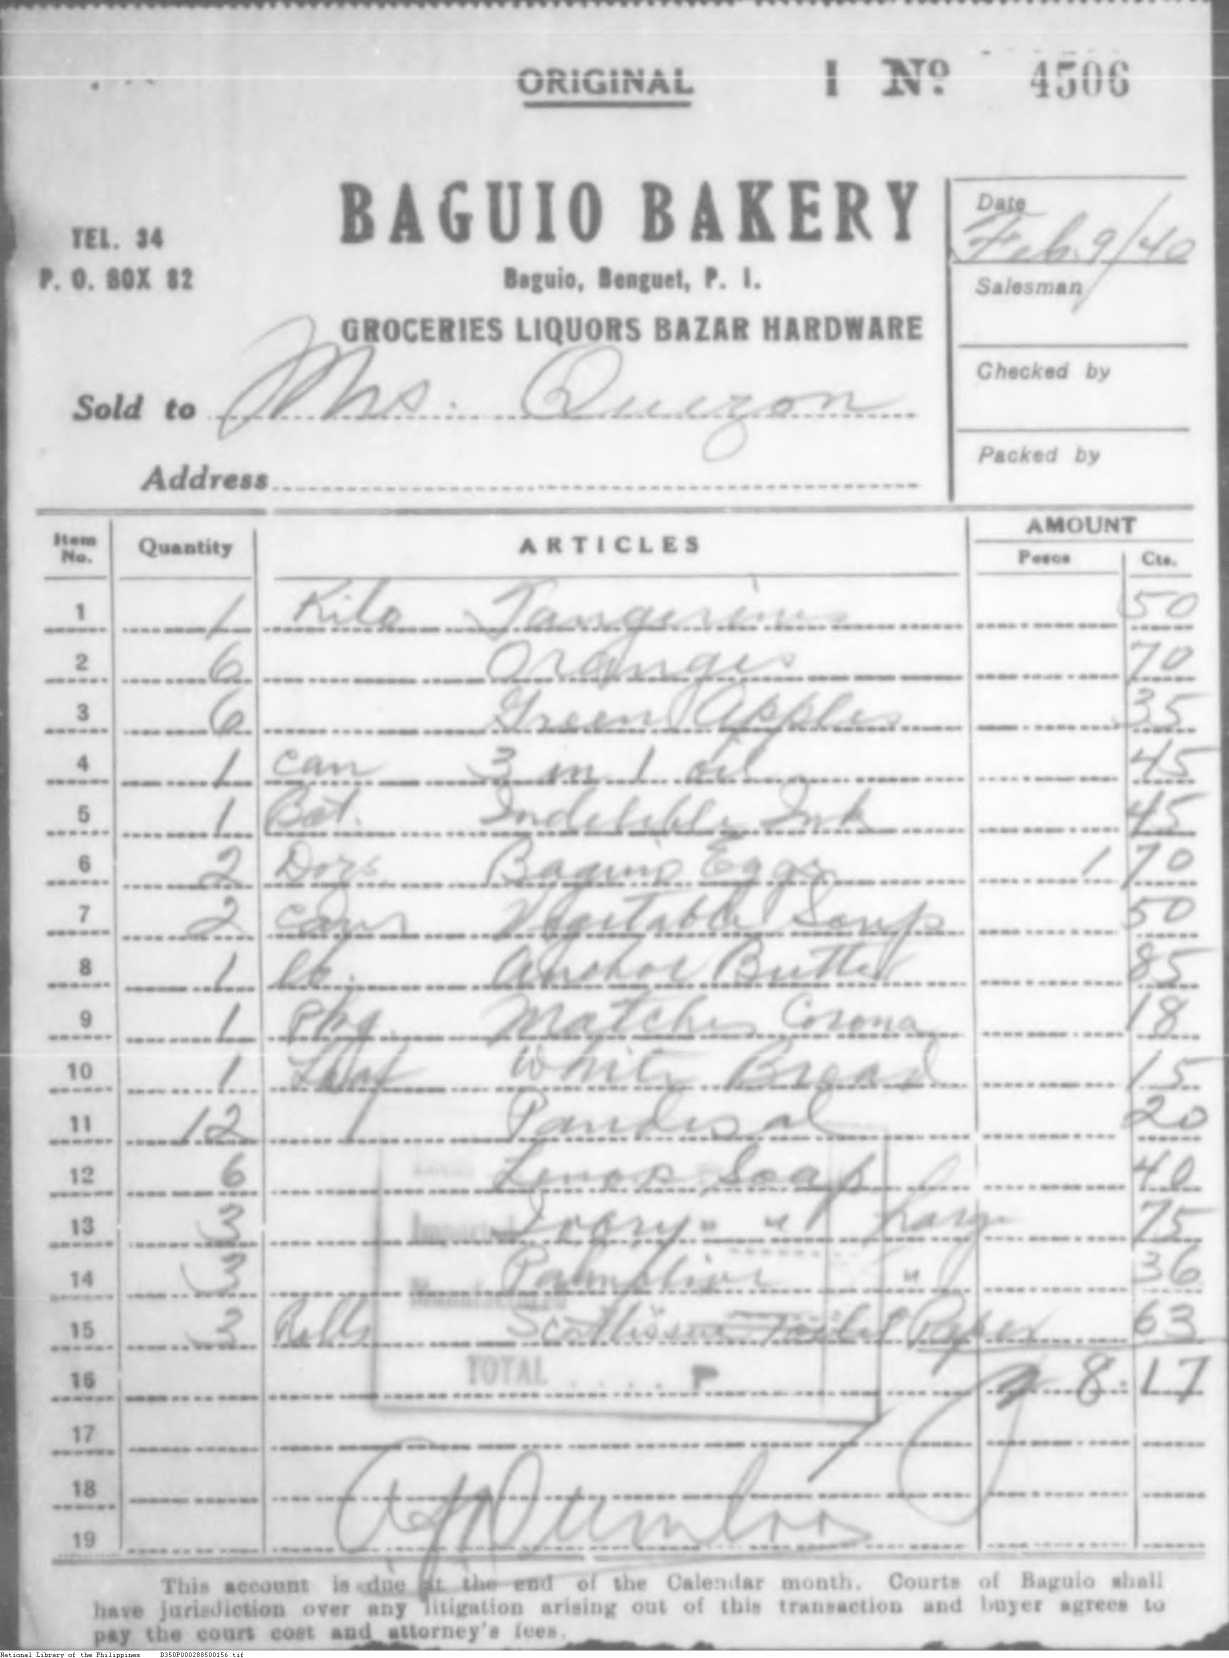 ORIGINAL I Nº 4506
BAGUIO BAKERY
TEL. 34
P. O. BOX 82
Baguio, Benguet, P. I.
GROCERIES LIQUORS BAZAR HARDWARE
Date Feb. 9/40
Salesman
Checked by
Packed by
Sold to Mrs. Quezon
Address
Item No. Quantity ARTICLES AMOUNT Pesos Cts.
1 1 Kilo Tangerines 50
2 6 Oranges 70
3 6 Green Apples 35
4 1 can 3 in 1 oil 45
5 1 Bot. Indelible Ink 45
6 2 Dozs Baguio Eggs 1 70
7 2 cans Vegetable Soup 50
8 1 lb. Anchor Butter 85
9 1 pkg. Matches Corona 18
10 1 Loaf White Bread 15
11 12 Pandisal 20
12 6 Lenox Soap 40
13 3 Ivory " " Large 75
14 3 Palmolive " 36
15 3 Rolls Scottissue Toilet Paper 63
16 8.17
17
18
19
Imported
TOTAL .... P
This account is due at the end of the Calendar month. Courts of Baguio shall
have jurisdiction over any litigation arising out of this transaction and buyer agrees to
pay the court cost and attorney's fees.
National Library of the Philippines D350P000288500156.tif